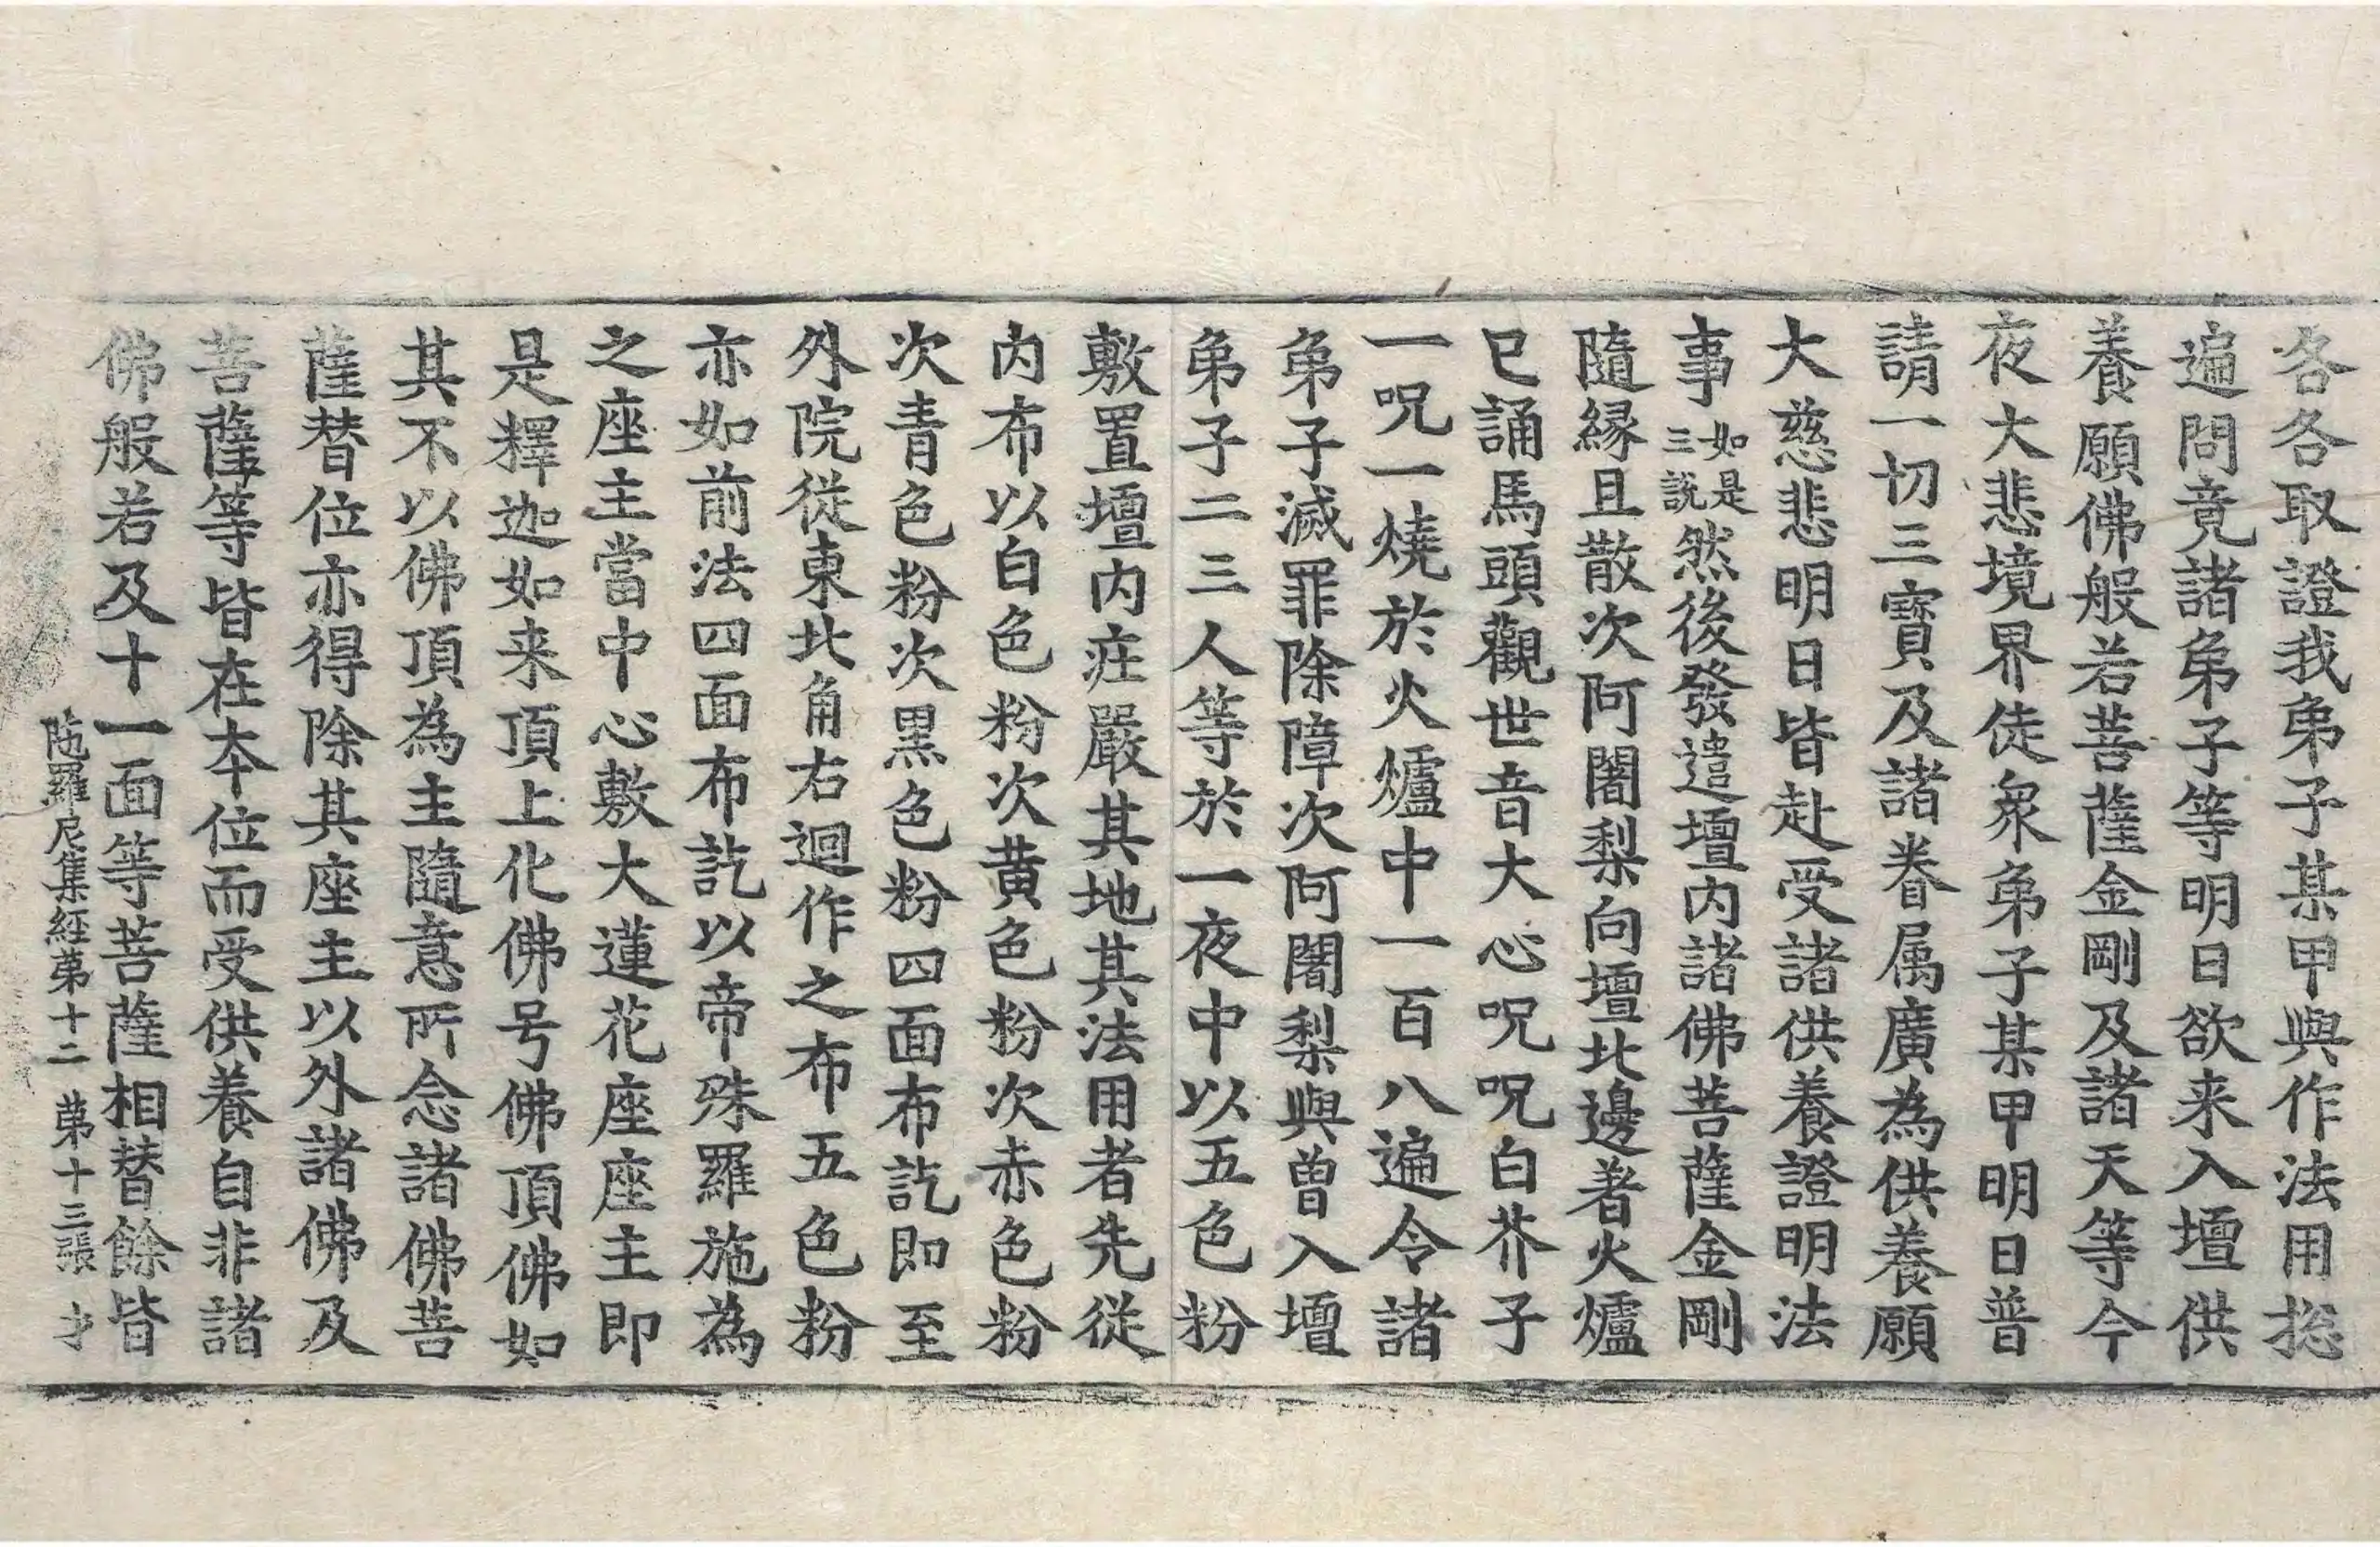 各各取證我弟子某甲與作法用捴
遍問竟諸弟子等明日欲来入壇供
養願佛般若菩薩金剛及諸天等今
夜大悲境界徒衆弟子某甲明日普
請一切三寶及諸眷属廣為供養願
大慈悲明日皆赴受諸供養證明法
事如是三說然後發遣壇内諸佛菩薩金剛
隨縁且散次阿闍梨向壇北邊著火爐
已誦馬頭觀世音大心呪呪白芥子
一呪一燒於火爐中一百八遍令諸
弟子滅罪除障次阿闍梨與曽入壇
弟子二三人等於一夜中以五色粉
敷置壇内庄嚴其地其法用者先從
内布以白色粉次黄色粉次赤色粉
次青色粉次黒色粉四面布訖即至
外院從東北角右迴作之布五色粉
亦如前法四面布訖以帝殊羅施為
之座主當中心敷大蓮花座座主即
是釋迦如来頂上化佛号佛頂佛如
其不以佛頂為主隨意所念諸佛菩
薩替位亦得除其座主以外諸佛及
菩薩等皆在夲位而受供養自非諸
佛般若及十一面等菩薩相替餘皆
陁羅尼集經苐十二 苐十三張 才